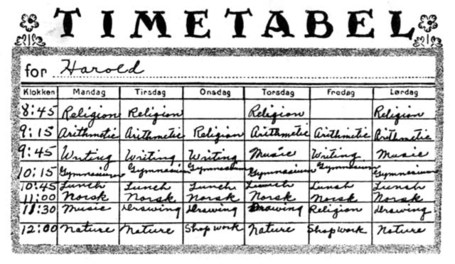 TIMETABEL
for Harold
Klokken Mandag Tirsdag Onsdag Torsdag Fredag Lørdag
8:45 Religion Religion Religion Religion
9:15 Arithmetic Arithmetic Religion Arithmetic Arithmetic Arithmetic
9:45 Writing Writing Writing Music Writing Music
10:15 Gymnasium Gymnasium Gymnasium Gymnasium Gymnasium Gymnasium
10:45 Lunch Lunch Lunch Lunch Lunch Lunch
11:00 Norsk Norsk Norsk Norsk Norsk Norsk
11:30 Music Drawing Drawing Drawing Religion Drawing
12:00 Nature Nature Shop work Nature Shop work Nature